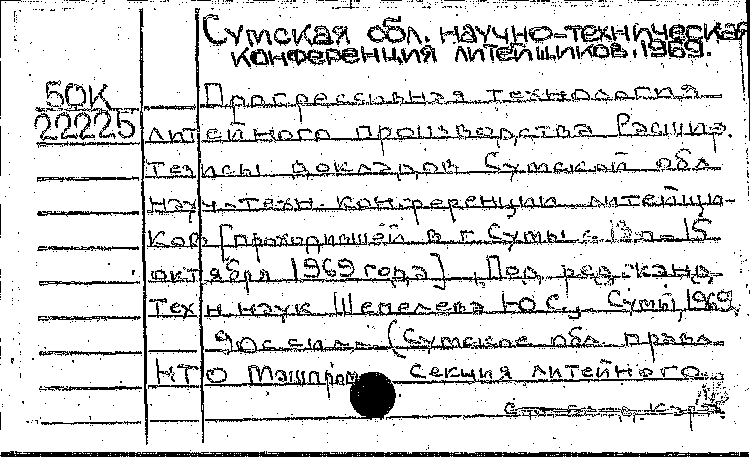 Сумская обл. научно-техническая
конференция литейщиков. 1969.
50К Прогрессивная технология
22225 литейного производства Расшир.
тезисы докладов Сумской обл
науч-техн. конференции литейщи-
ков [проходившей в г. Сумы с 13 по 15
октября 1969 года]. Под ред. канд
техн наук Шепелева Ю.С. Сумы, 1969.
90с ил. (Сумское обл правл
НТО Машпром. Секция литейного